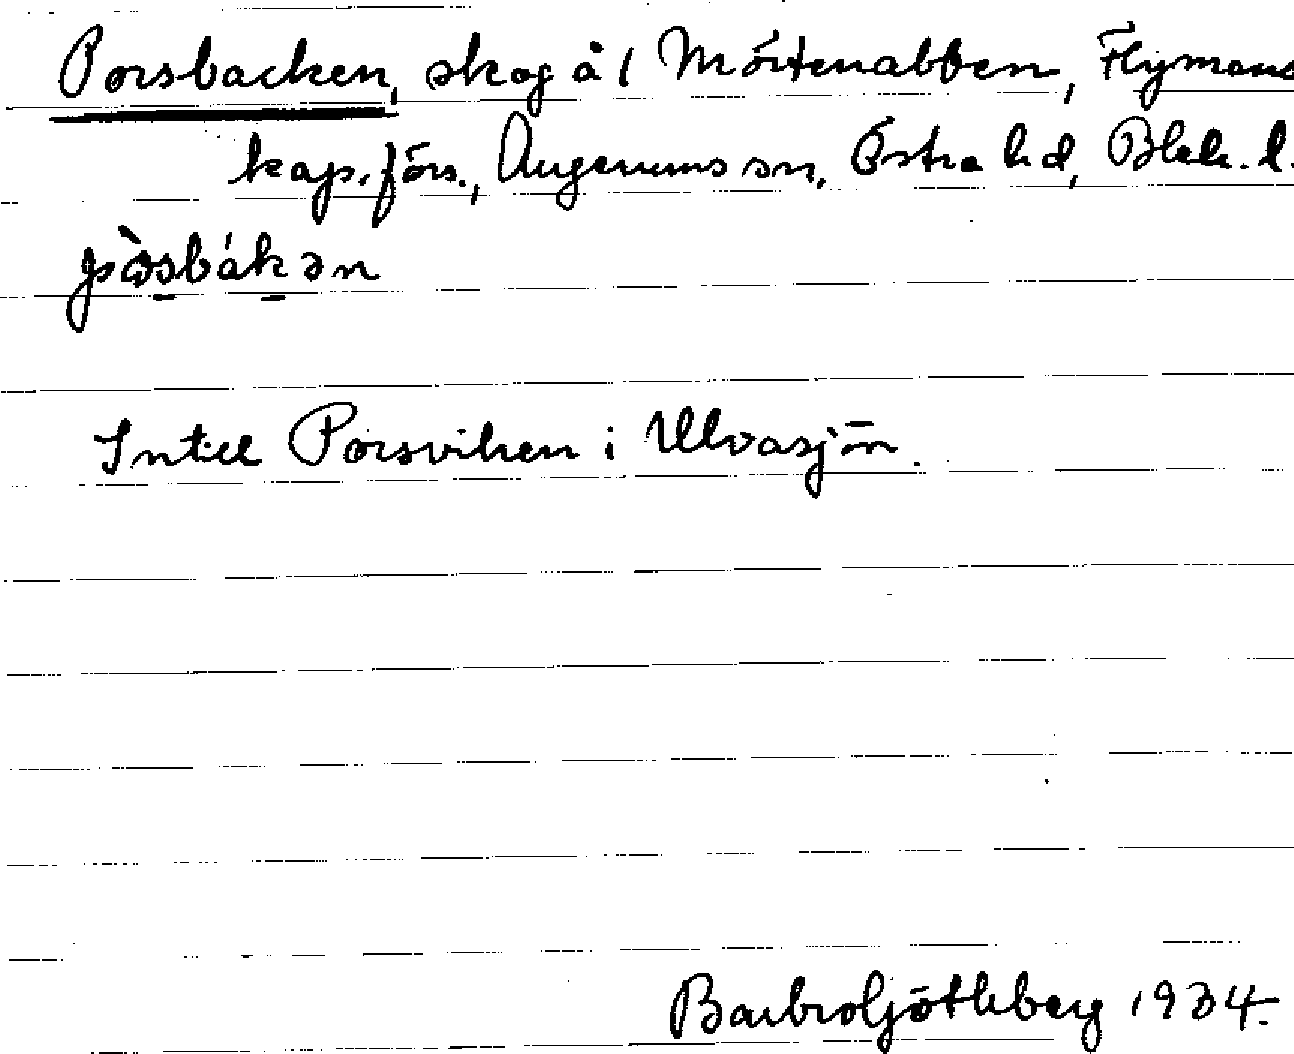 Porsbacken, skog å 1 Mörtenabben, Flymans
kap. förs., Augerums sn, Östra hd, Blek. l.
pòsbákən
Intill Porsviken i Ulvasjön.
Barbro Götleberg 1934.